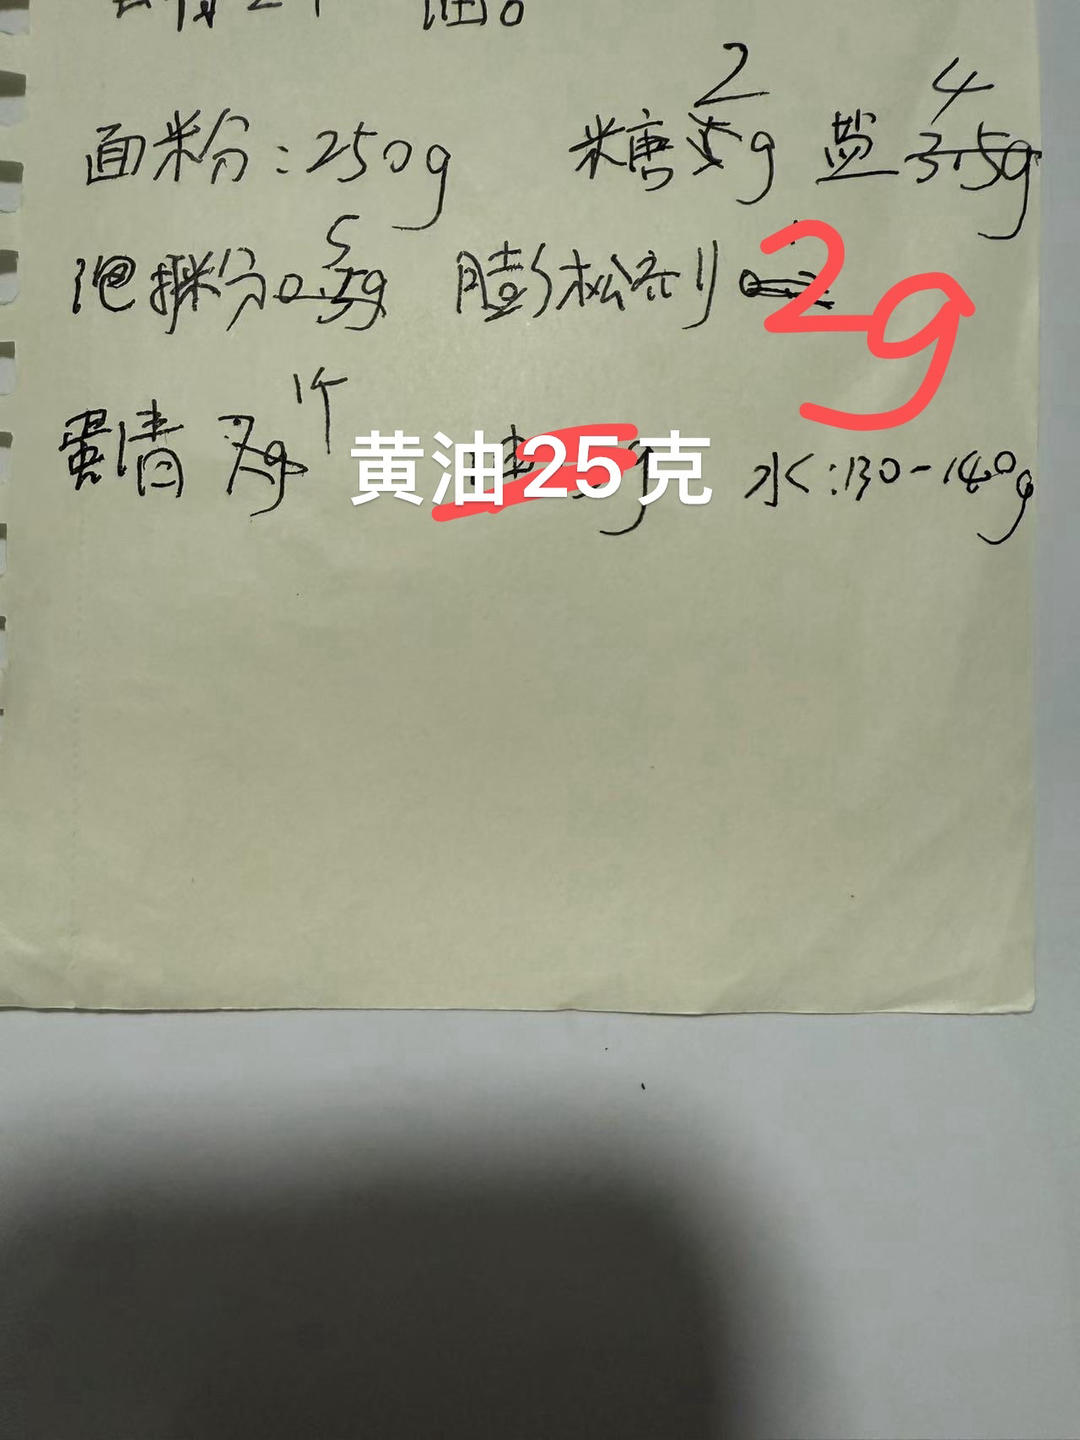 面粉:250g 糖2g 盐4
泡打粉5 膨松剂2g
蛋清 1个 黄油25克 水:130-140g